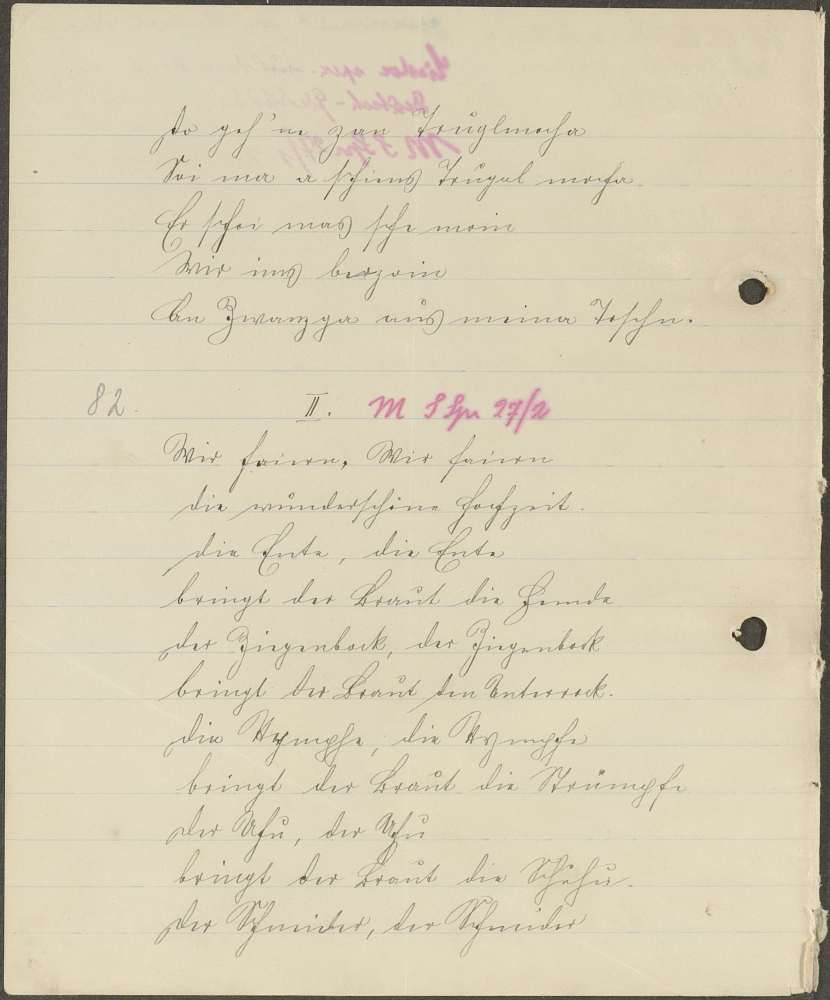 Do geh'ne zan Truglmocha
Soi ma a schiens Trugal mocha.
Er schoi mas sche moin
Wir ins bezoin
An Zwanzga aus meina Toschn.
82. II. M S Spr 27/2
Wir feiern, Wir feiern
die wunderschöne Hochzeit.
die Ente, die Ente
bringt der Braut die Hemde
der Ziegenbock, der Ziegenbock
bringt der Braut den Unterrock.
die Nymphe, die Nymphe
bringt der Braut die Strümpfe
der Uhu, der Uhu
bringt der Braut die Schuhu.
der Schneider, der Schneider